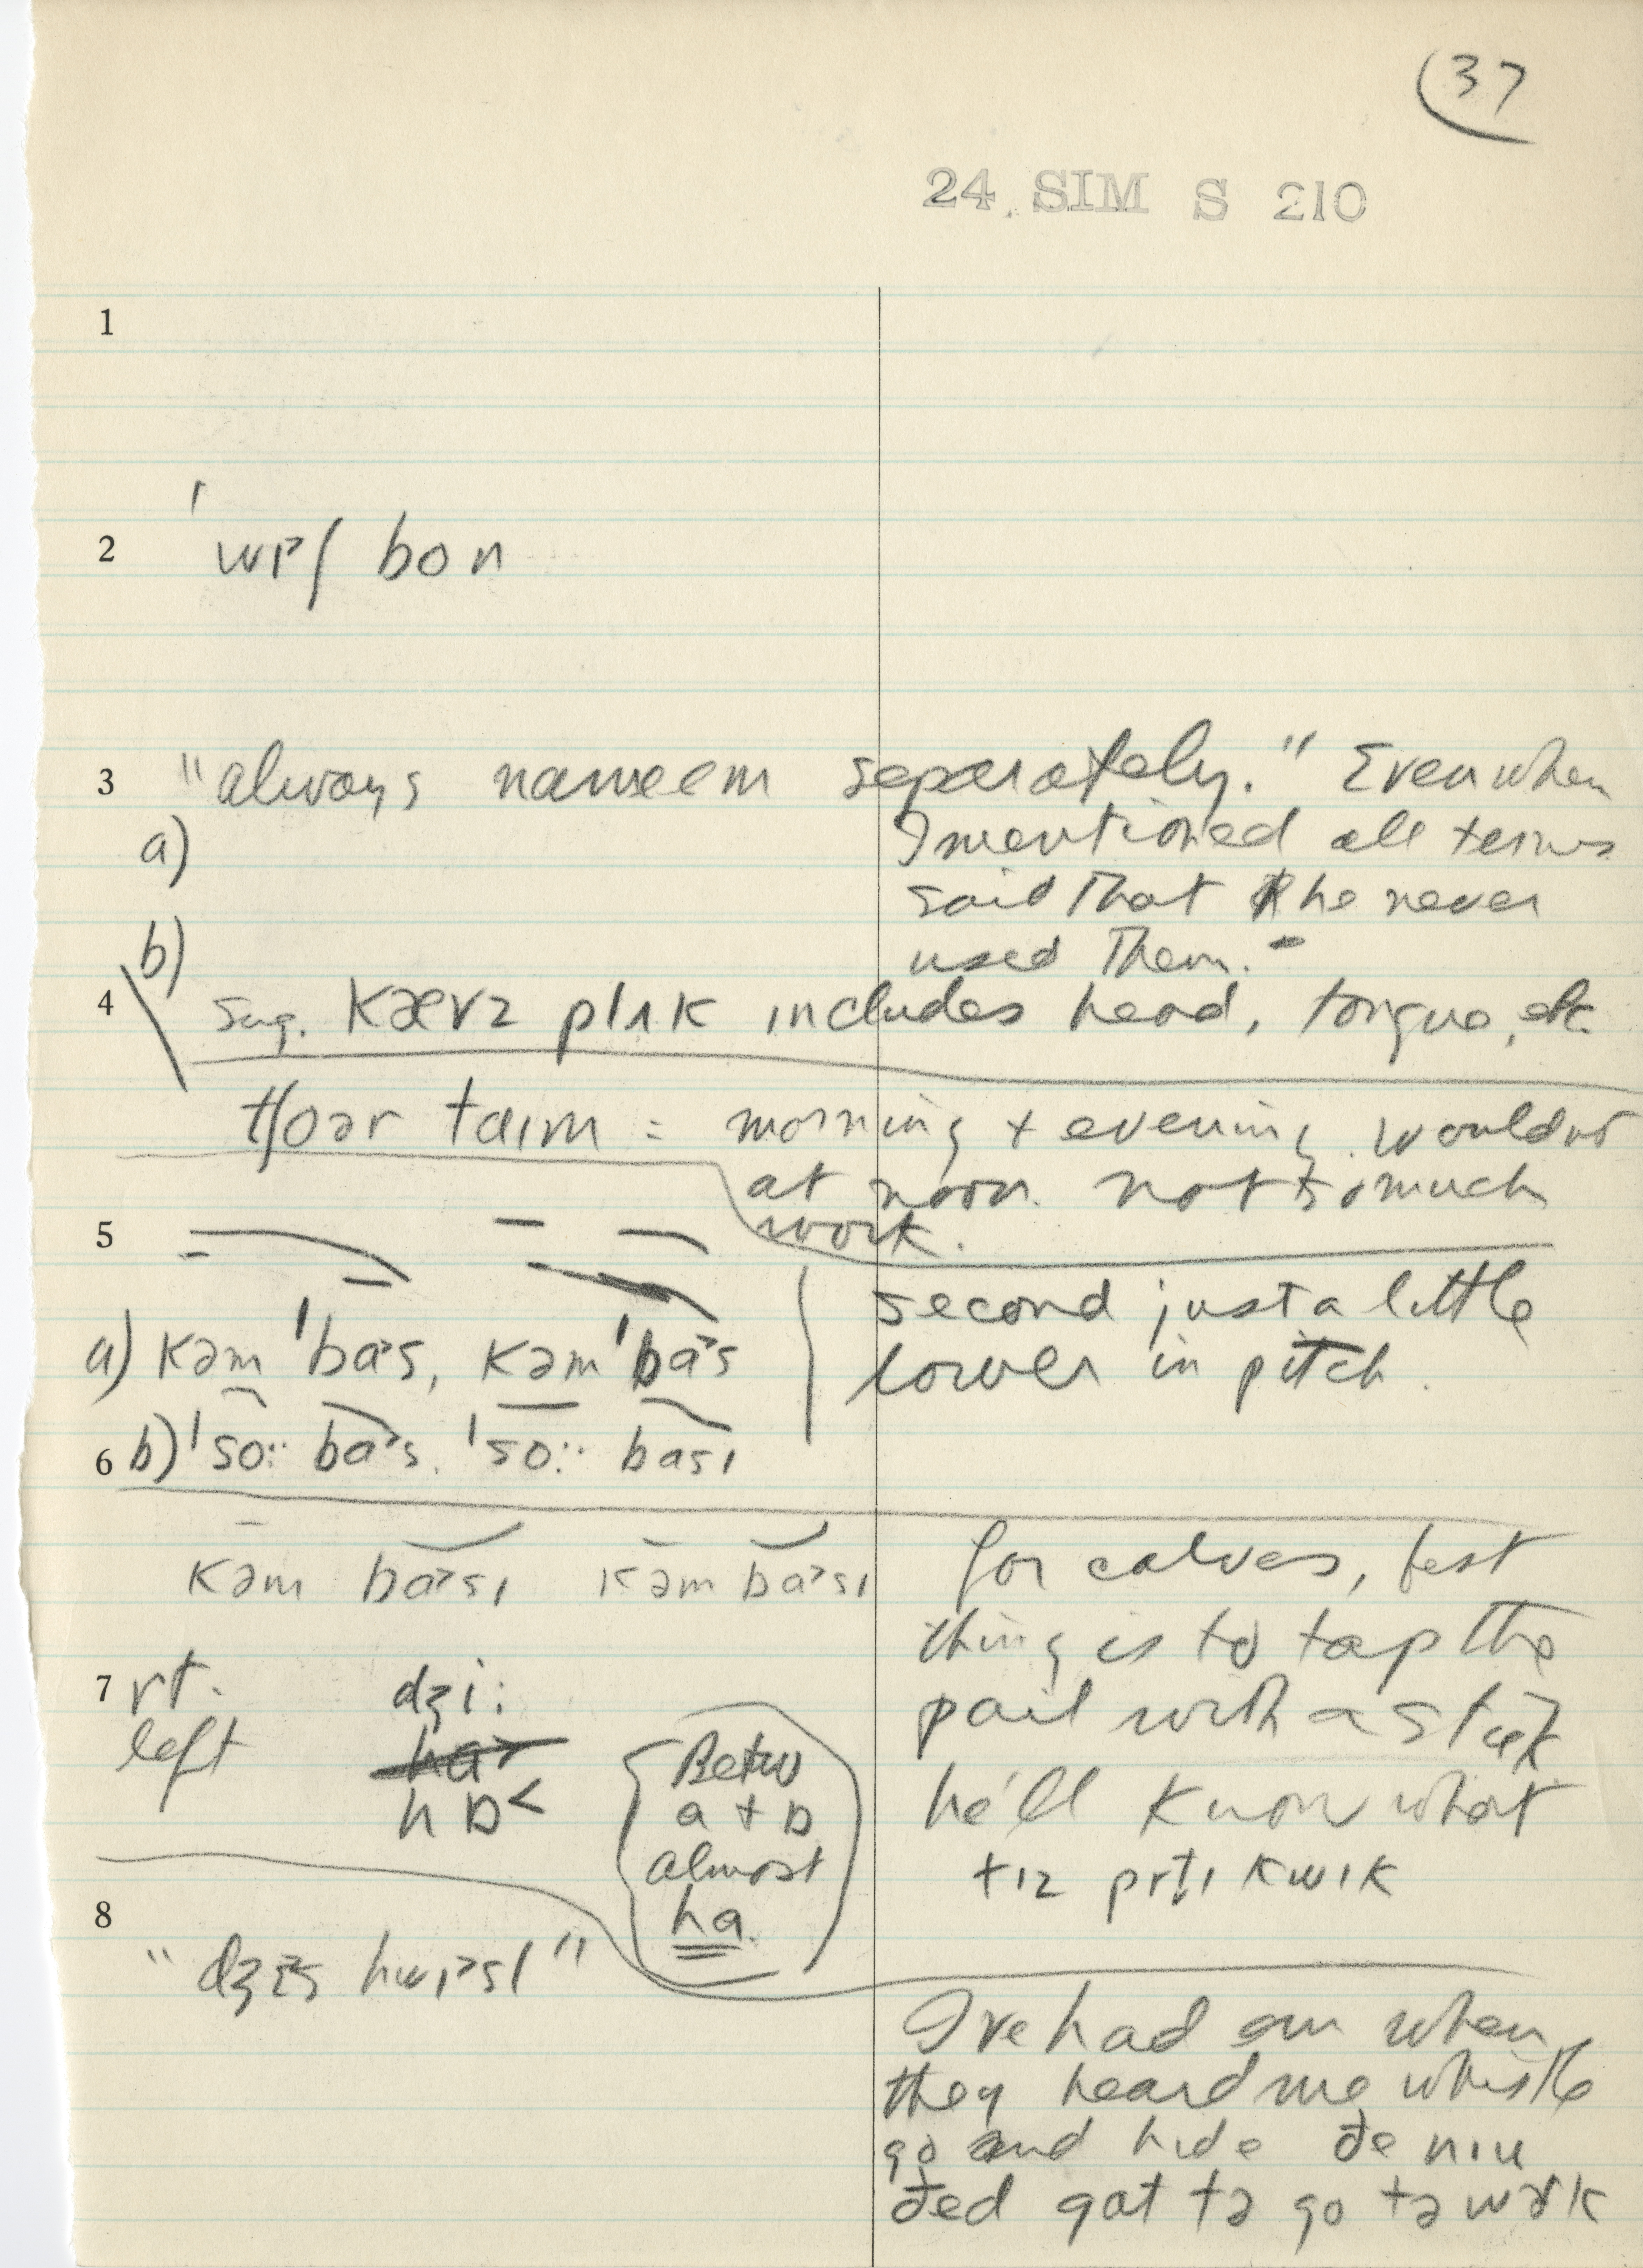 37
24 SIM S 210
1
2 ˈwɪ˃ʃ bon
3 "always nameem seperately." Even when
a) I mentioned all terms
said that he never
b) used them.-
4 sug. kævz plʌk includes head, tongue, etc.
tʃoər taɪm = morning + evening. wouldnt
at noon. not so much
work.
5
a) kəm ˈba˃s, kəm ˈba˃s second just a little
lower in pitch.
6 b) ˈso:: ba˃s. ˈso:: basɪ
kəm ba˃sɪ kəm ba˃sɪ for calves, best
thing is to tap the
7 rt. dʒi: pail with a stick
left ha˃ Betw
hɒ˂ a + ɒ he'll know what
almost tɪz prɪt̬ɪ kwɪk
8 ha.
"dʒɪs hwɪ˃sl"
I've had em when
they heard me whistle
go and hide ðe niu
ðed gat tə go tə wɚk